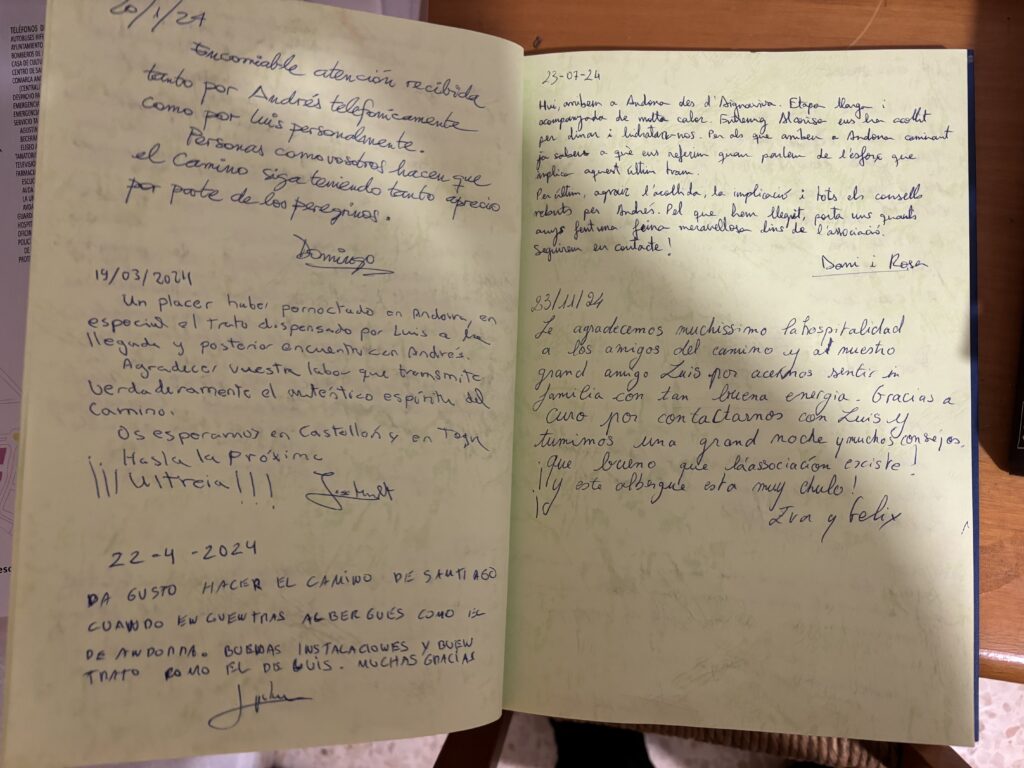 TELÉFONOS D
AYUNTAMIENTO
BOMBEROS DE
CASA DE CULTU
CENTRO DE SA
COMARCA AN
(CENTRAL
DESPACHO PA
EMERGENCIA
EMERGENCIA
SERVICIO TA
AGUSTIN
TANATORIO
TELEVISION
FARMACIA
20/1/24
Encomiable atención recibida
tanto por Andrés telefónicamente
como por Luis personalmente.
Personas como vosotros hacen que
el Camino siga teniendo tanto aprecio
por parte de los peregrinos.
Domingo
19/03/2024
Un placer haber pernoctado en Andorra, en
especial el Trato dispensado por Luis a la
llegada y posterior encuentro con Andrés.
Agradecer vuestra labor que transmite
verdaderamente el auténtico espíritu del
Camino.
Os esperamos en Castellón y en
Hasta la Próxima
¡¡¡Ultreia!!!
22-4-2024
DA GUSTO HACER EL CAMINO DE SANTIAGO
CUANDO ENCUENTRAS ALBERGUES COMO EL
DE ANDORRA. BUENAS INSTALACIONES Y BUEN
TRATO COMO EL DE LUIS. MUCHAS GRACIAS
23-07-24
Hui, arribem a Andorra des d'Aiguaviva. Etapa llarga i
acompanyada de molta calor. Entremig Marisa ens ha acollit
per dinar i hidratar-nos. Per als que arriben a Andorra caminant
ja sabeu a què ens referim quan parlem de l'esforç que
implica aquest últim tram.
Per últim, agrair l'acollida, la implicació i tots els consells
rebuts per Andrés. Pel que hem llegit, porta uns quants
anys fent una feina meravellosa dins de l'associació.
Seguirem en contacte!
Dani i Rosa
23/11/24
Le agradecemos muchissimo la hospitalidad
a los amigos del camino y al nuestro
grand amigo Luis por acernos sentir in
familia con tan buena energia. Gracias a
Curo por contactarnos con Luis y
tumimos una grand noche y muchos consejos.
¡Que bueno que la associacion exciste!
¡Y este albergue esta muy chulo!
Iva y Felix